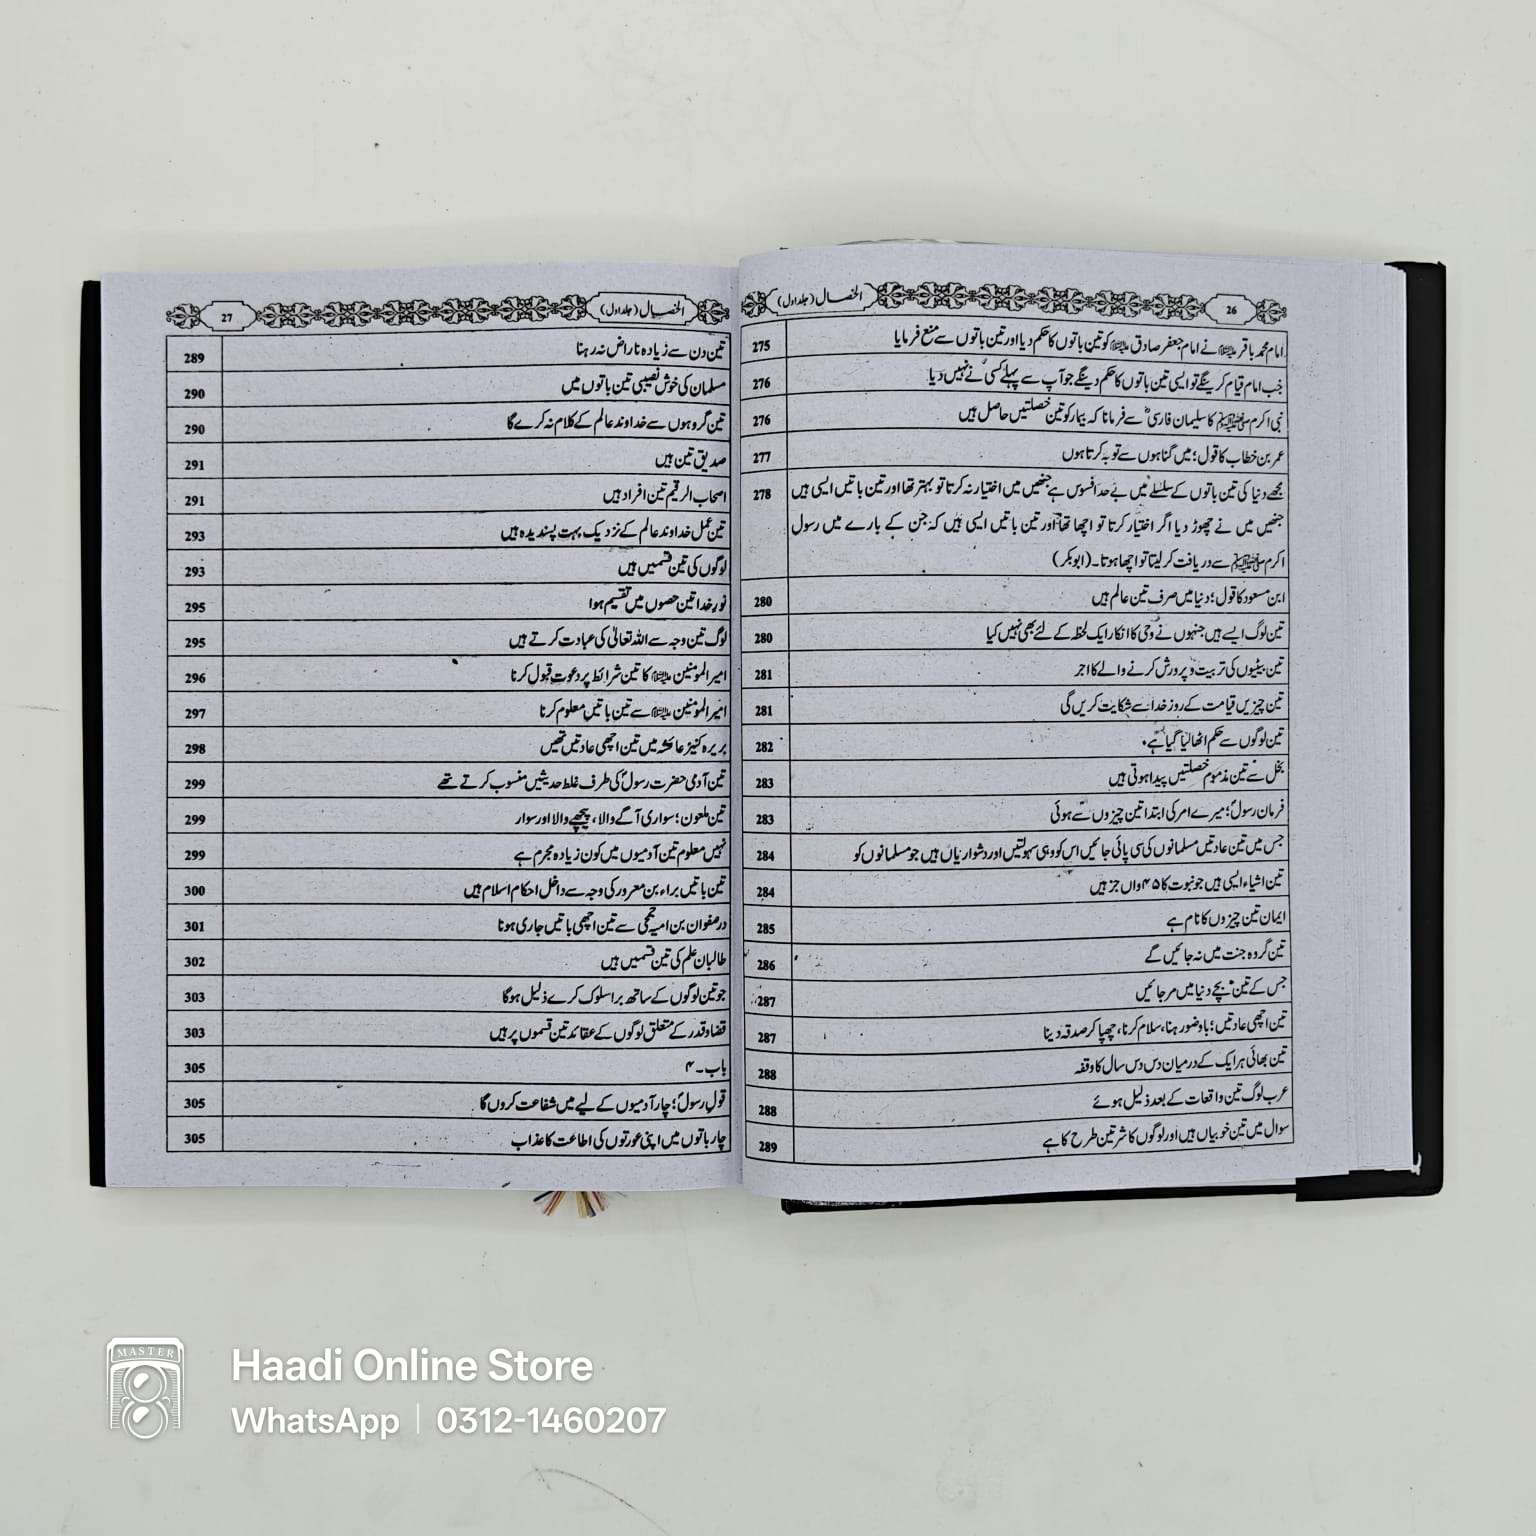 26
الخصال (جلد اول)
امام محمد باقر علیہ السلام نے امام جعفر صادق علیہ السلام کو تین باتوں کا حکم دیا اور تین باتوں سے منع فرمایا 275
جب امام قیام کرینگے تو ایسی تین باتوں کا حکم دینگے جو آپ سے پہلے کسی نے نہیں دیا 276
نبی اکرم صلی اللہ علیہ وسلم کا سلیمان فارسیؓ سے فرمانا کہ بیمار کو تین خصلتیں حاصل ہیں 276
عمر بن خطاب کا قول؛ میں گناہوں سے توبہ کرتا ہوں 277
مجھے دنیا کی تین باتوں کے سلسلے میں بے حد افسوس ہے جنھیں میں اختیار نہ کرتا تو بہتر تھا اور تین باتیں ایسی ہیں 278
جنھیں میں نے چھوڑ دیا اگر اختیار کرتا تو اچھا تھا اور تین باتیں ایسی ہیں کہ جن کے بارے میں رسول
اکرم صلی اللہ علیہ وسلم سے دریافت کر لیتا تو اچھا ہوتا۔ (ابوبکر)
ابن مسعود کا قول؛ دنیا میں صرف تین عالم ہیں 280
تین لوگ ایسے ہیں جنہوں نے وحی کا انکار ایک لحظہ کے لئے بھی نہیں کیا 280
تین بیٹیوں کی تربیت و پرورش کرنے والے کا اجر 281
تین چیزیں قیامت کے روز خدا سے شکایت کریں گی 281
تین لوگوں سے حکم اٹھا لیا گیا ہے۔ 282
بخل سے تین مذموم خصلتیں پیدا ہوتی ہیں 283
فرمان رسولؐ؛ میرے امر کی ابتدا تین چیزوں سے ہوئی 283
جس میں تین عادتیں مسلمانوں کی سی پائی جائیں اس کو وہی سہولتیں اور دشواریاں ہیں جو مسلمانوں کو 284
تین اشیاء ایسی ہیں جو نبوت کا ۴۵ واں جز ہیں 284
ایمان تین چیزوں کا نام ہے 285
تین گروہ جنت میں نہ جائیں گے 286
جس کے تین بچے دنیا میں مر جائیں 287
تین اچھی عادتیں؛ باوضو رہنا، سلام کرنا، چھپا کر صدقہ دینا 287
تین بھائی ہر ایک کے درمیان دس دس سال کا وقفہ 288
عرب لوگ تین واقعات کے بعد ذلیل ہوئے 288
سوال میں تین خوبیاں ہیں اور لوگوں کا شر تین طرح کا ہے 289
27
الخصال (جلد اول)
تین دن سے زیادہ ناراض نہ رہنا 289
مسلمان کی خوش نصیبی تین باتوں میں 290
تین گروہوں سے خداوند عالم کے کلام نہ کرے گا 290
صدیق تین ہیں 291
اصحاب الرقیم تین افراد ہیں 291
تین عمل خداوند عالم کے نزدیک بہت پسندیدہ ہیں 293
لوگوں کی تین قسمیں ہیں 293
نور خدا تین حصوں میں تقسیم ہوا 295
لوگ تین وجہ سے اللہ تعالیٰ کی عبادت کرتے ہیں 295
امیر المومنین علیہ السلام کا تین شرائط پر دعوت قبول کرنا 296
امیر المومنین علیہ السلام سے تین باتیں معلوم کرنا 297
بریرہ کنیز عائشہ میں تین اچھی عادتیں تھیں 298
تین آدمی حضرت رسولؐ کی طرف غلط حدیثیں منسوب کرتے تھے 299
تین ملعون؛ سواری آگے والا، پیچھے والا اور سوار 299
نہیں معلوم تین آدمیوں میں کون زیادہ مجرم ہے 299
تین باتیں براء بن معرور کی وجہ سے داخل احکام اسلام ہیں 300
در صفوان بن امیہ جمحی سے تین اچھی باتیں جاری ہونا 301
طالبان علم کی تین قسمیں ہیں 302
جو تین لوگوں کے ساتھ برا سلوک کرے ذلیل ہوگا 303
قضا و قدر کے متعلق لوگوں کے عقائد تین قسموں پر ہیں 303
باب۔۴ 305
قول رسولؐ؛ چار آدمیوں کے لیے میں شفاعت کروں گا 305
چار باتوں میں اپنی عورتوں کی اطاعت کا عذاب 305
MASTER
Haadi Online Store
WhatsApp | 0312-1460207